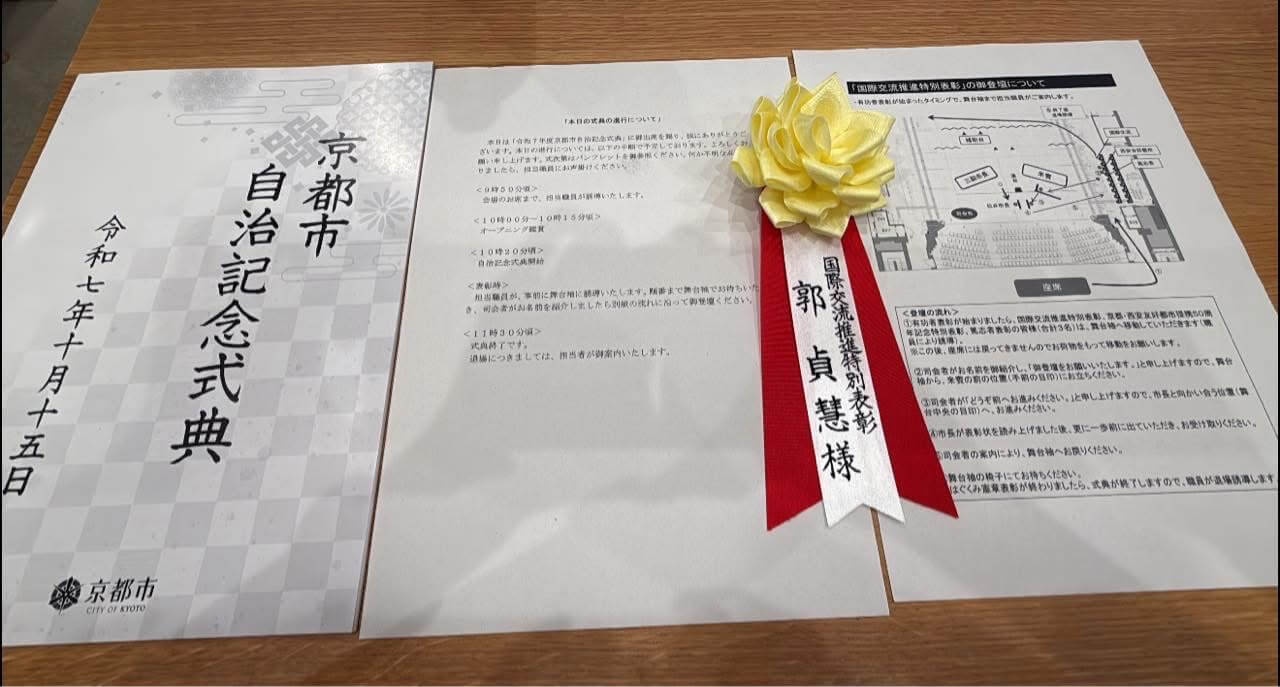 京都市
自治記念式典
令和七年十月十五日
京都市
CITY OF KYOTO
「本日の式典の進行について」
本日は「令和7年度京都市自治記念式典」に御出席を賜り、誠にありがとうご
ざいます。本日の進行については、以下の手順で予定しております。よろしくお
願い申し上げます。式次第はパンフレットを御参照ください。何か不明な点
りましたら、担当職員にお声掛けください。
<9時50分頃>
会場のお席まで、担当職員が誘導いたします。
<10時00分~10時15分頃>
オープニング鑑賞
<10時20分頃>
自治記念式典開始
<表彰時>
担当職員が、事前に舞台袖に誘導いたします。順番まで舞台袖でお待ちいた
き、司会者がお名前を紹介しましたら別紙の流れに沿って御登壇ください。
<11時30分頃>
式典終了です。
退場につきましては、担当者が御案内いたします。
国際交流推進特別表彰
郭貞慧様
「国際交流推進特別表彰」の御登壇について
・有功者表彰が始まったタイミングで、舞台袖まで担当職員がご案内します。
国際交流
演台
三副市長
来賓
松井市長
司会者
座席
<登壇の流れ>
①有功者表彰が始まりましたら、国際交流推進特別表彰、京都・西安友好都市提携50周
年記念特別表彰、篤志者表彰の皆様(合計3名)は、舞台袖へ移動していただきます(職
員により誘導)。
※この後、座席には戻ってきませんのでお荷物をもって移動をお願いします。
②司会者がお名前を御紹介し、「御登壇をお願いいたします。」と申し上げますので、舞台
袖から、来賓の前の位置(手前の目印)にお立ちください。
③司会者が「どうぞ前へお進みください。」と申し上げますので、市長と向かい合う位置(舞
台中央の目印)へ、お進みください。
④市長が表彰状を読み上げました後、更に一歩前に出ていただき、お受け取りください。
⑤司会者の案内により、舞台袖へお戻りください。
舞台袖の椅子にてお待ちください。
はぐくみ憲章表彰が終わりましたら、式典が終了しますので、職員が退場誘導します